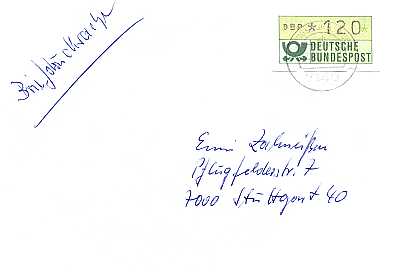 Briefdrucksache
DBP * 120
DEUTSCHE
BUNDESPOST
Emi
Pflugfelderstr. 7
7000 Stuttgart 40